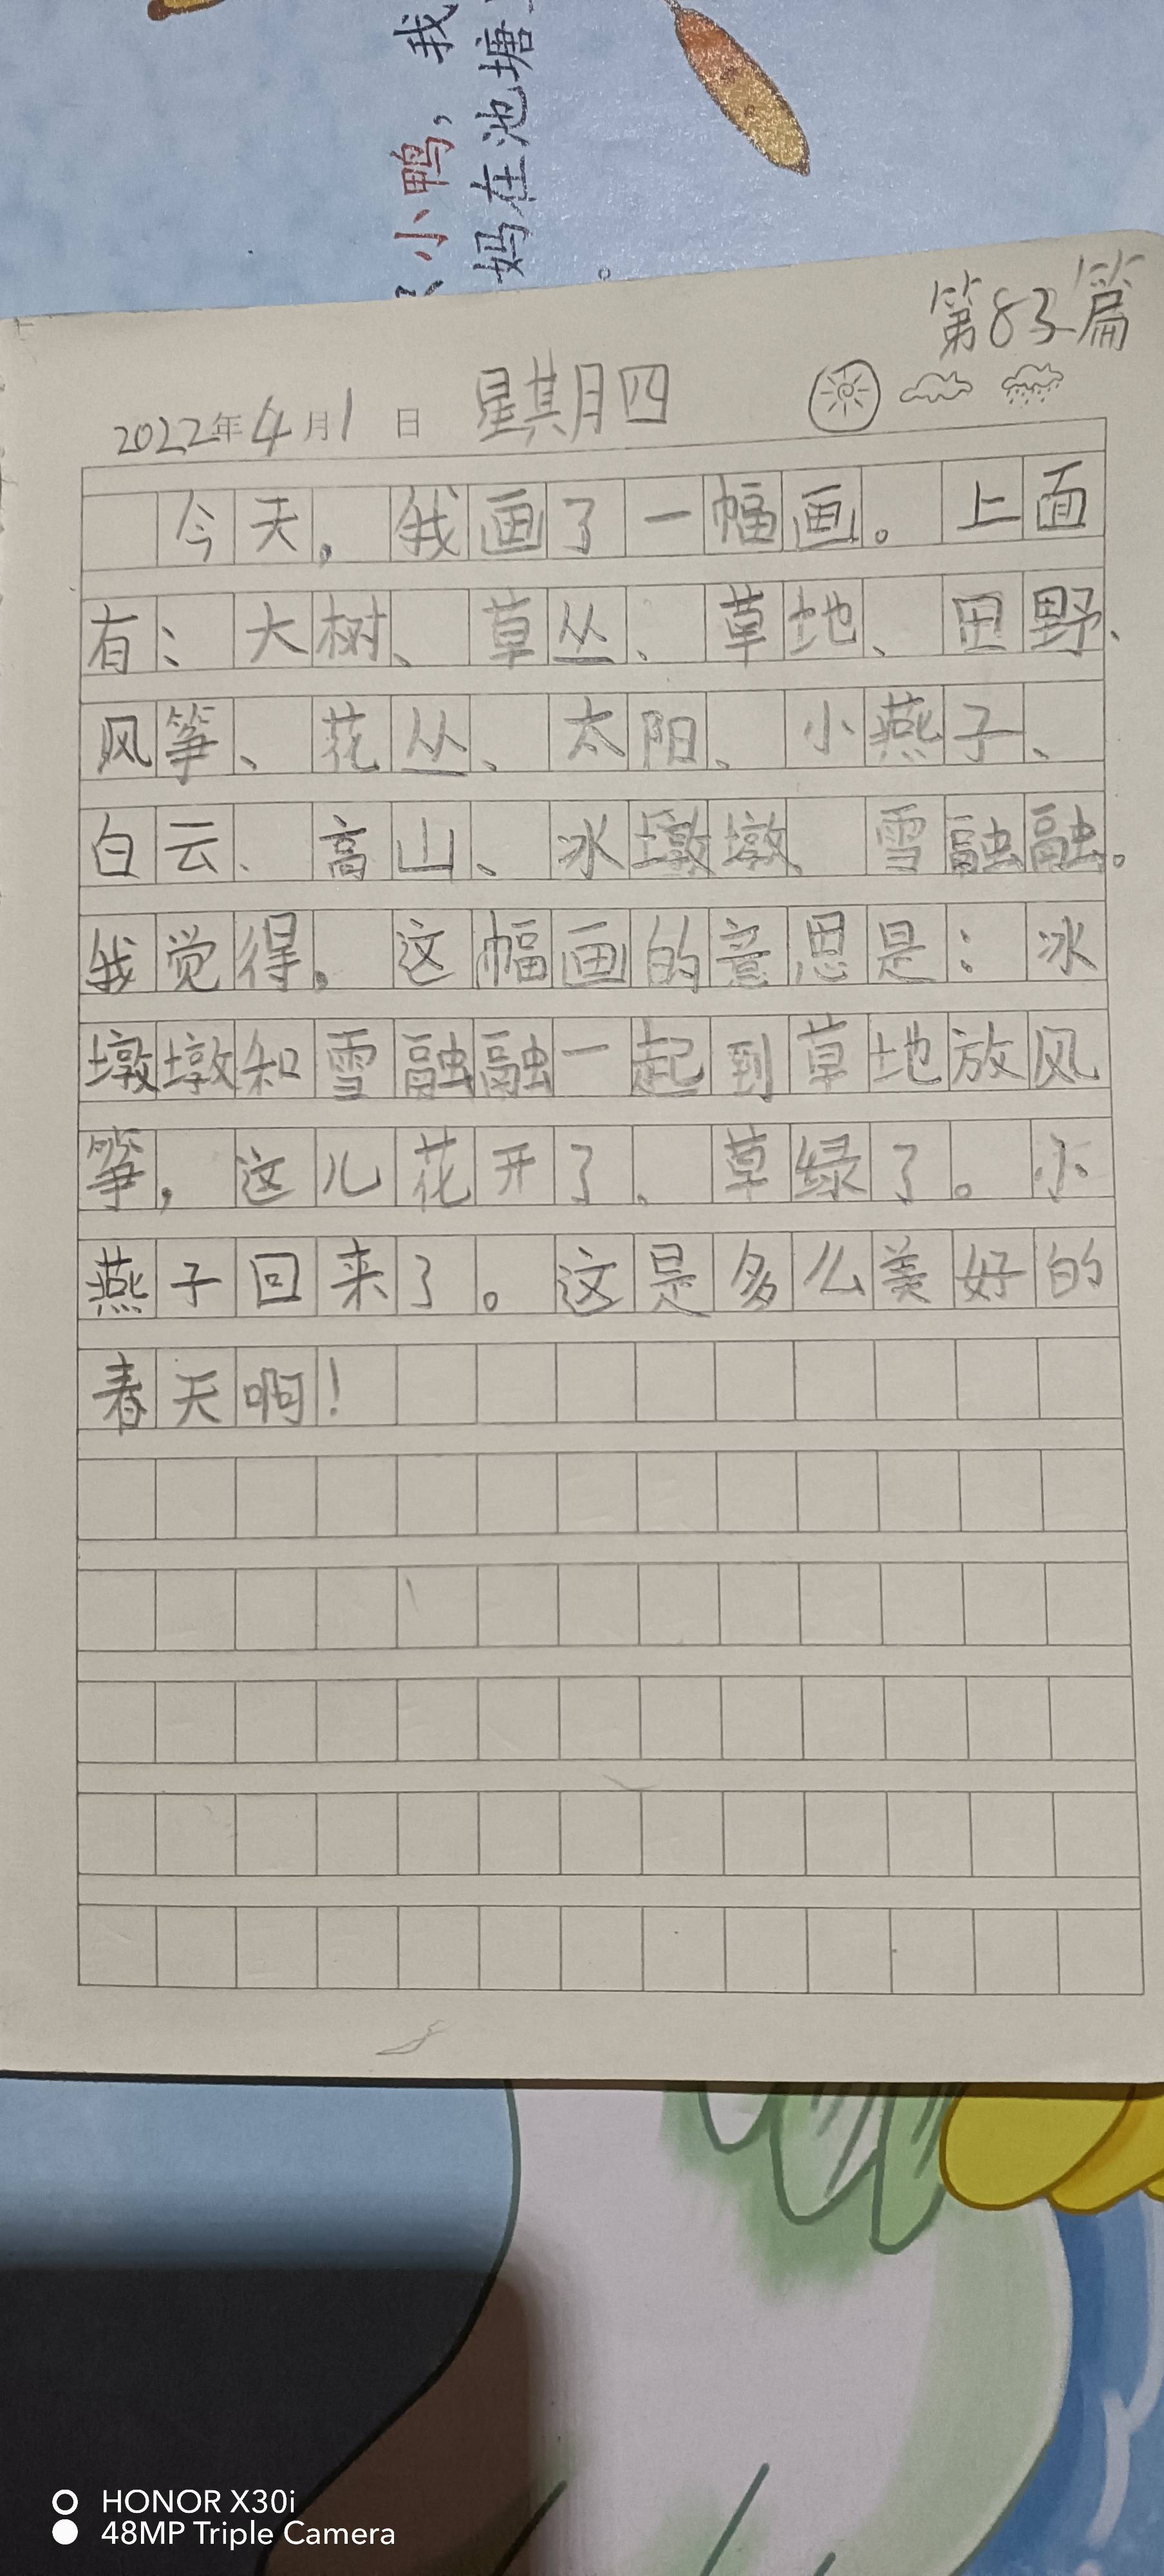 小鸭，我
妈在池塘
。
第83篇
2022年4月1日 星期四
今天，我画了一幅画。上面
有：大树、草丛、草地、田野、
风筝、花丛、太阳、小燕子、
白云、高山、冰墩墩、雪融融。
我觉得，这幅画的意思是：冰
墩墩和雪融融一起到草地放风
筝，这儿花开了、草绿了。小
燕子回来了。这是多么美好的
春天啊！
HONOR X30i
48MP Triple Camera